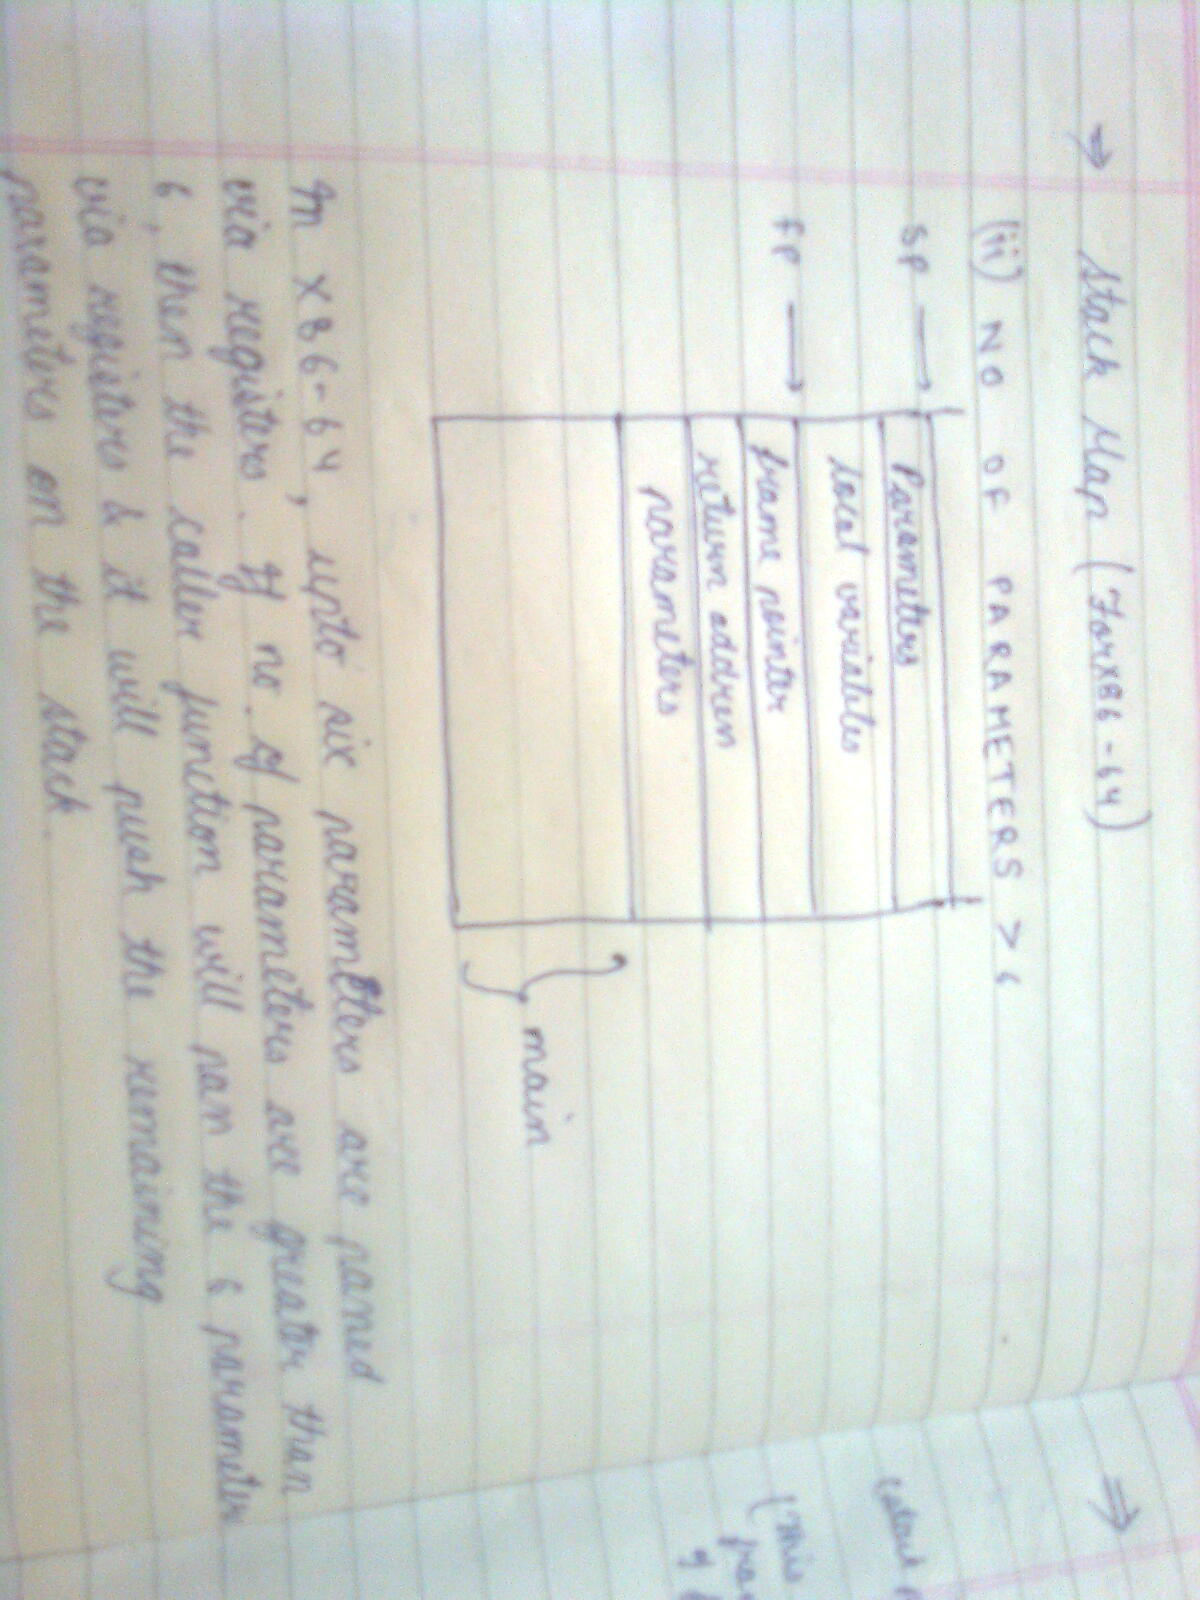 ⇒ Stack Map (For X86-64)
(ii) NO OF PARAMETERS > 6
SP → Parameters
local variables
fP → frame pointer
return address
parameters
main
In X86-64, upto six parameters are passed
via registers. If no. of parameters are greater than
6, then the caller function will pass the 6 parameter
via registers & it will push the remaining
parameters on the stack.
⇒
(This